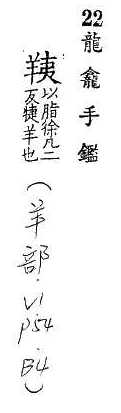 22 龍龕手鑑
羠以脂徐凡二
反犍羊也
(羊部.V1.p54.B4)